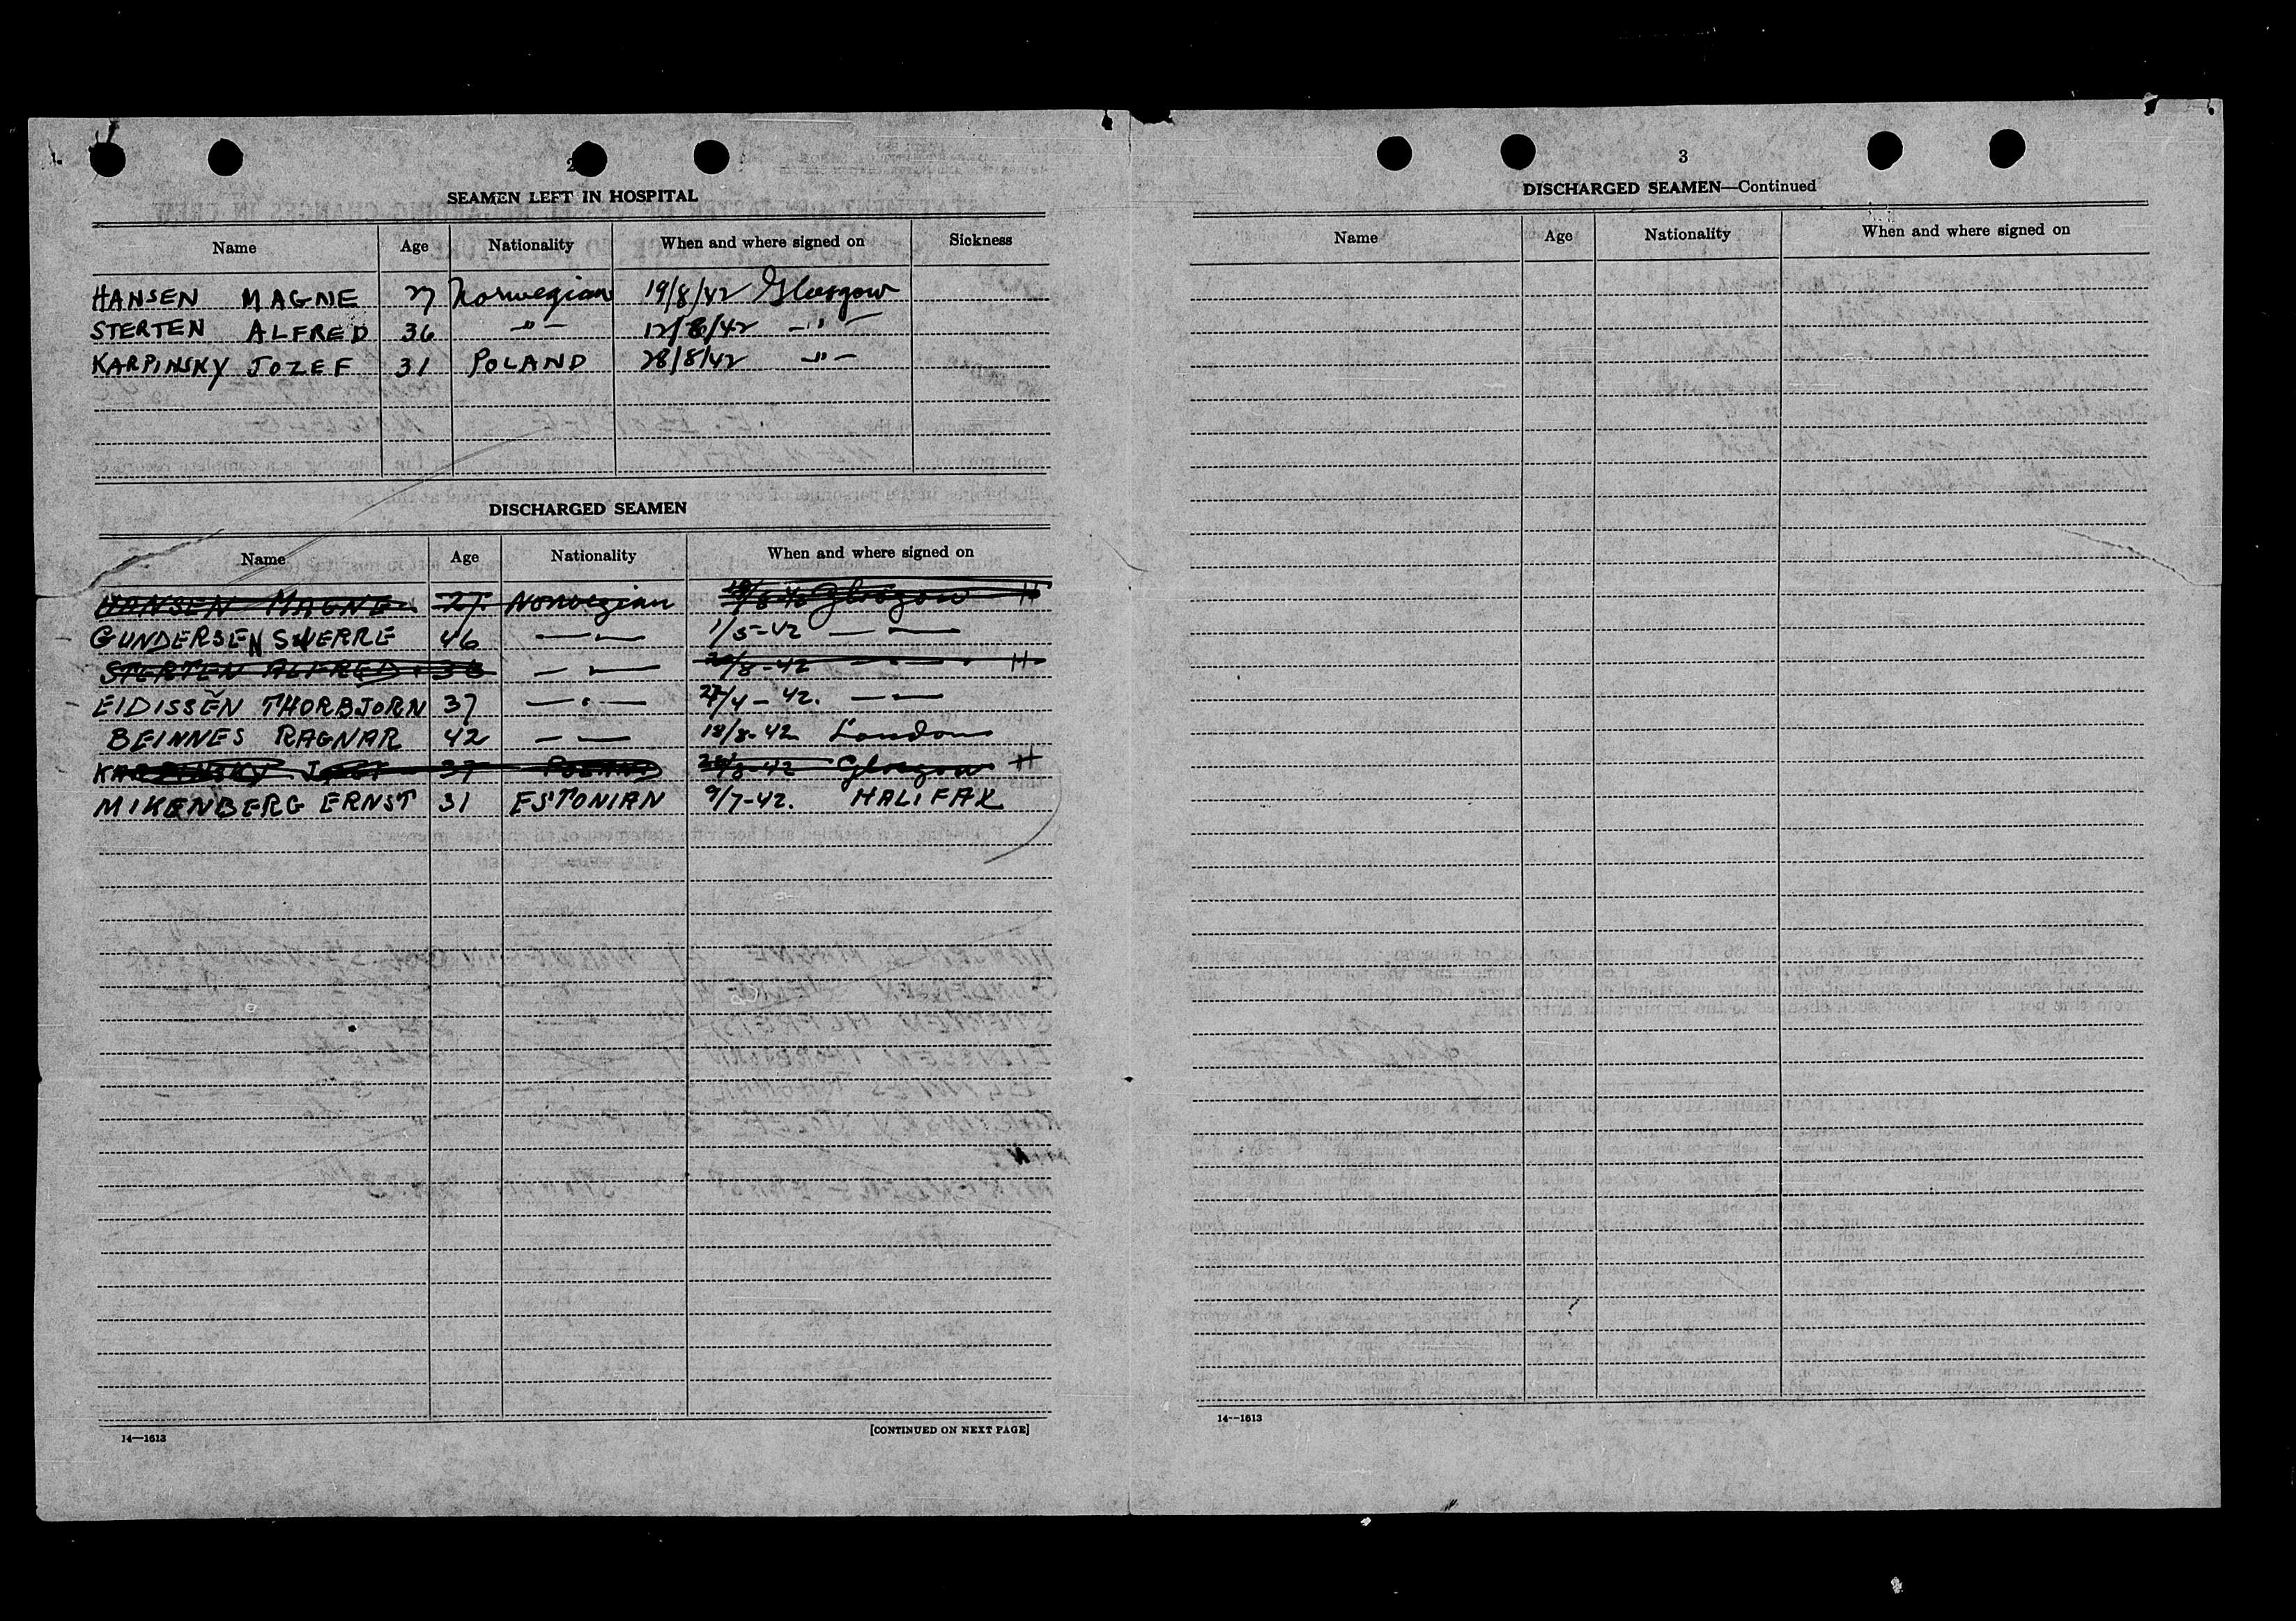 2
SEAMEN LEFT IN HOSPITAL
Name Age Nationality When and where signed on Sickness
HANSEN MAGNE 27 Norwegian 19/8/42 Glasgow
STERTEN ALFRED 36 —"— 12/8/42 —"—
KARPINSKY JOZEF 31 POLAND 28/8/42 —"—
DISCHARGED SEAMEN
Name Age Nationality When and where signed on
HANSEN MAGNE 27 Norwegian Glasgow H
GUNDERSEN SVERRE 46 —"— 1/5-42 —"—
STERTEN ALFRED 36 —"— /8-42 —"— H
EIDISSEN THORBJORN 37 —"— 27/4-42. —"—
BEINNES RAGNAR 42 —"— 18/8-42 London
KARPINSKY JOZEF 37 POLAND 28/8-42 Glasgow H
MIKENBERG ERNST 31 ESTONIAN 9/7-42. HALIFAX
14—1613
[CONTINUED ON NEXT PAGE]
3
DISCHARGED SEAMEN—Continued
Name Age Nationality When and where signed on
14—1613